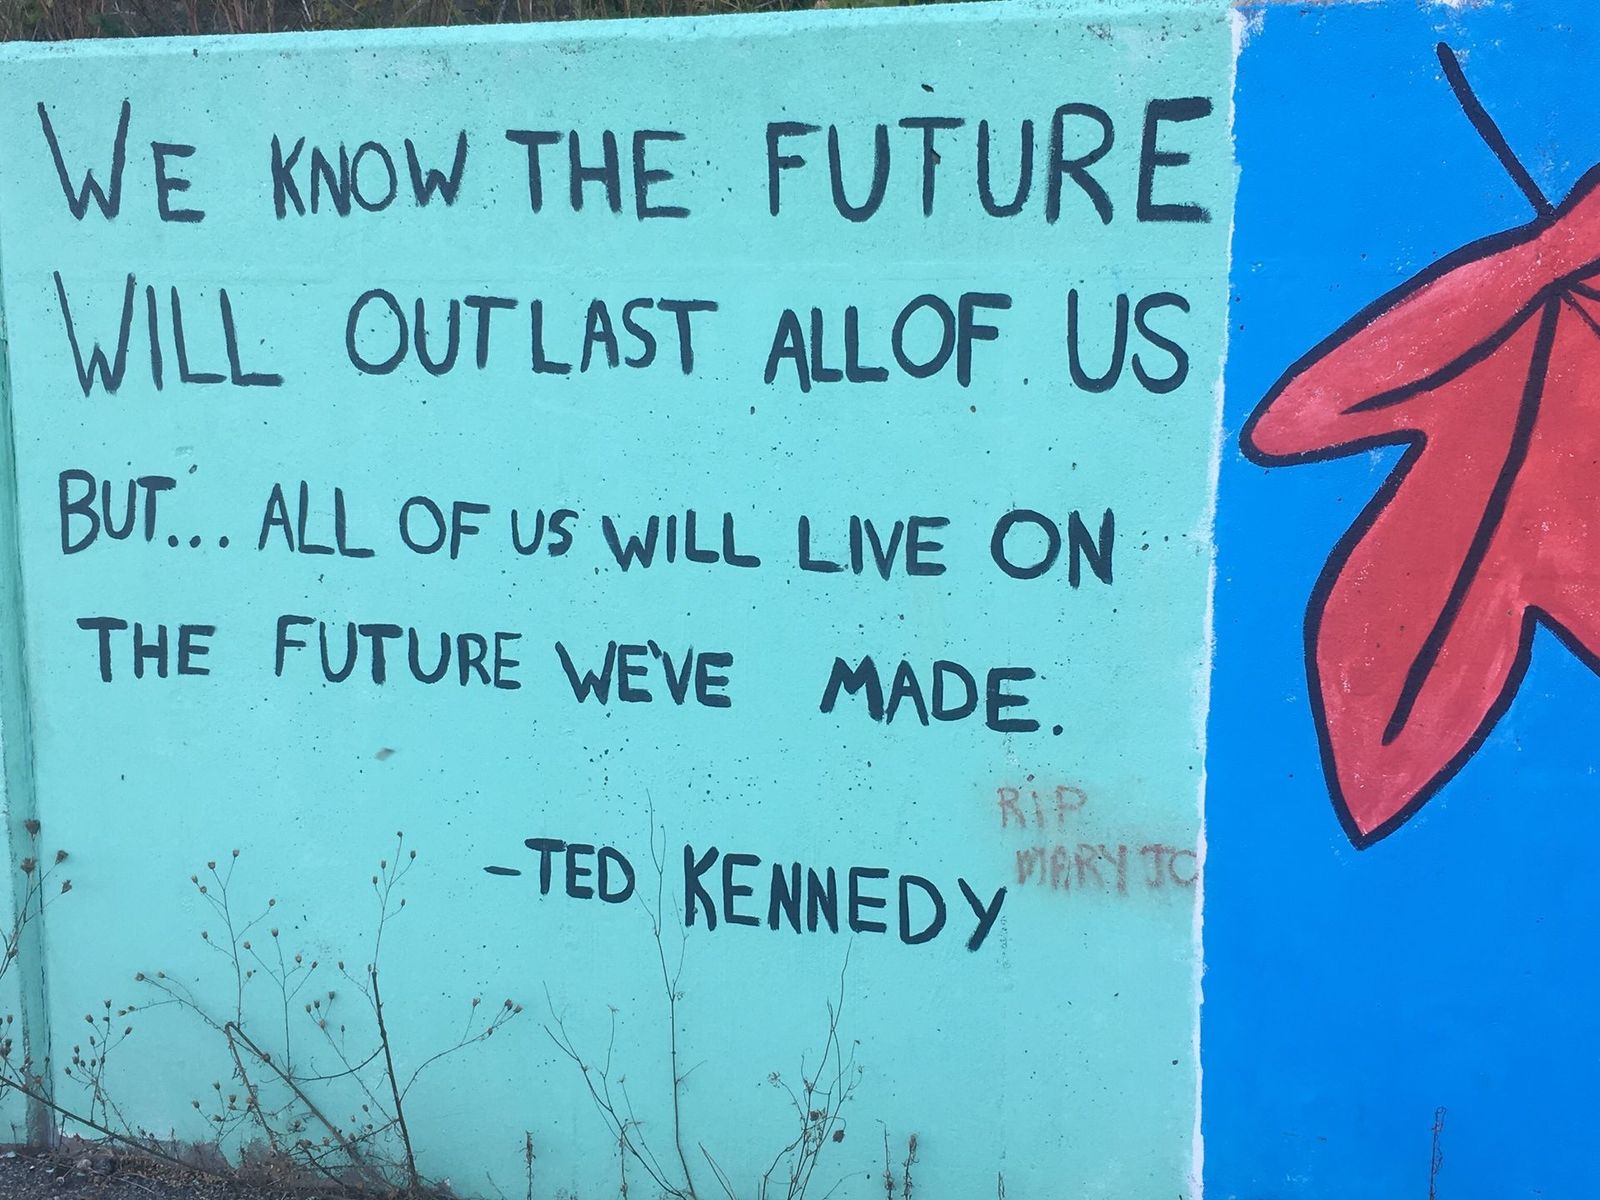 WE KNOW THE FUTURE
WILL OUTLAST ALL OF US
BUT... ALL OF US WILL LIVE ON
THE FUTURE WE'VE MADE.
RIP
MARY JO
-TED KENNEDY